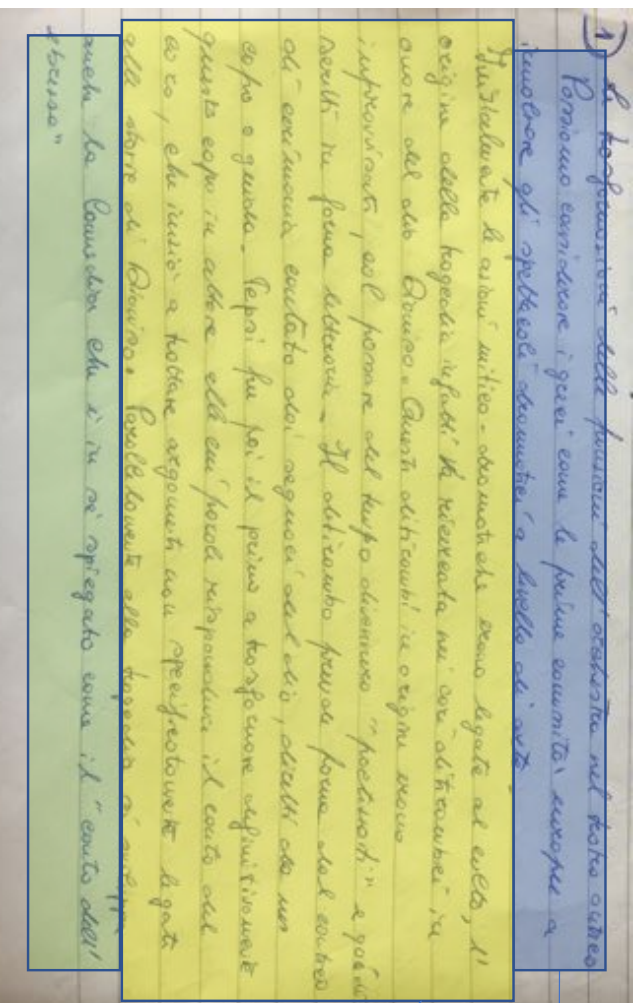 1) Le trasformazioni delle funzioni dell'orchestra nel teatro antico
Possiamo considerare i greci come la prima comunità europea a
innalzare gli spettacoli drammatici a livello di arte.
Inizialmente le azioni mitico-drammatiche erano legate al culto, l'
origine della tragedia infatti va ricercata nei cori ditirambici in
onore del dio Dioniso. Questi ditirambi in origine erano
improvvisati, col passare del tempo divennero "poetizzati" e quindi
scritti in forma letteraria. Il ditirambo prende forma dal cantico
di cerimonia cantato dai seguaci del dio, diretti da un
capo o guida. Tepsi fu poi il primo a trasformare definitivamente
questo capo in attore alle cui parole rispondeva il canto del
coro, che iniziò a trattare argomenti non specificatamente legati
alla storia di Dioniso. Parallelamente alla tragedia si sviluppa
anche la Commedia che è in sé spiegato come il "canto dell'
ebrezza"